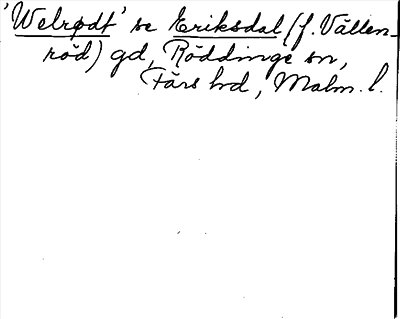 'Welrødt' se Eriksdal (f. Vällen-
röd) gd, Röddinge sn,
Färs hd, Malm. l.